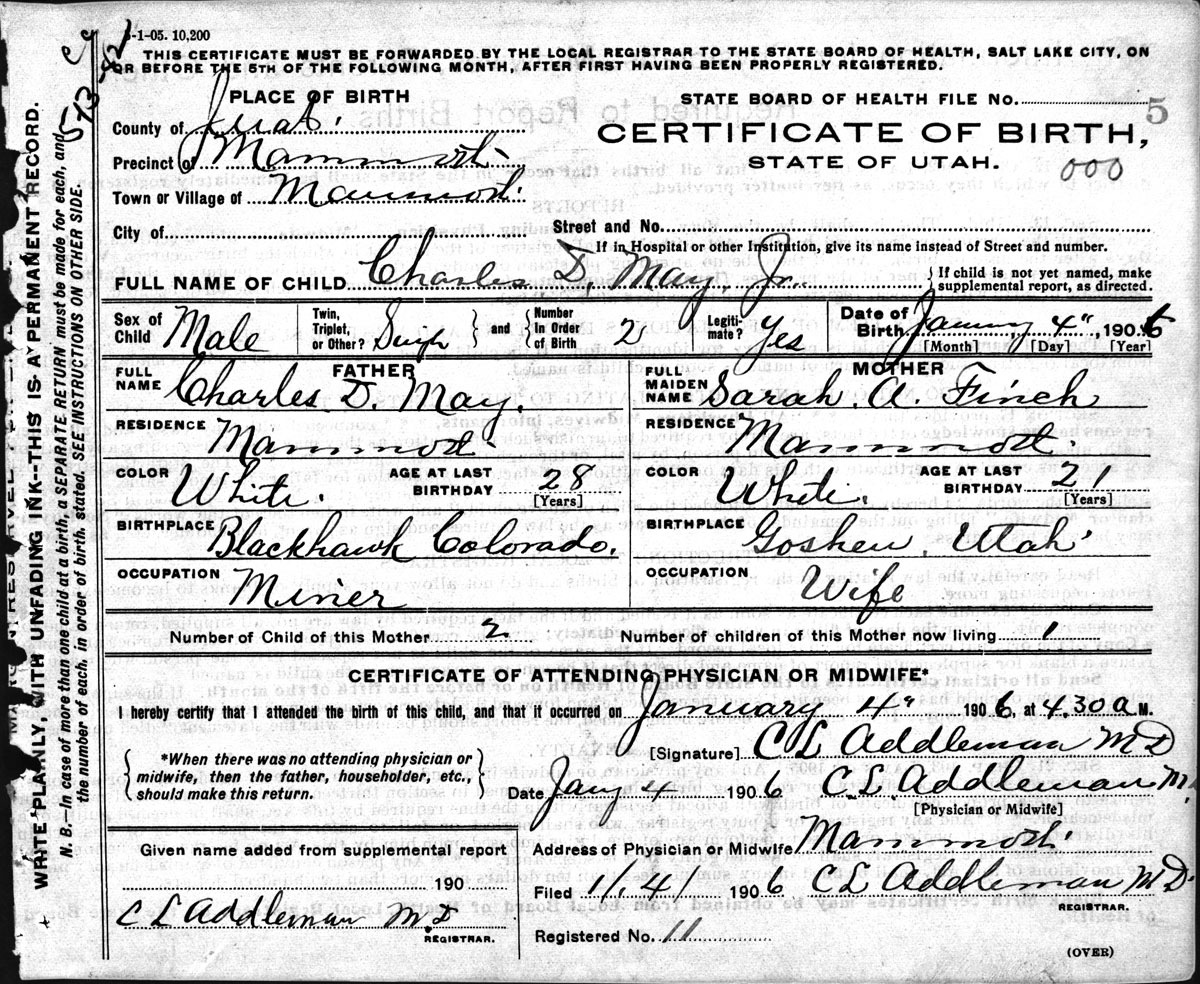 8-1-05. 10,200
THIS CERTIFICATE MUST BE FORWARDED BY THE LOCAL REGISTRAR TO THE STATE BOARD OF HEALTH, SALT LAKE CITY, ON
OR BEFORE THE 5TH OF THE FOLLOWING MONTH, AFTER FIRST HAVING BEEN PROPERLY REGISTERED.
PLACE OF BIRTH
STATE BOARD OF HEALTH FILE No. 5
County of Juab.
CERTIFICATE OF BIRTH,
Precinct of Mammoth
STATE OF UTAH. 000
Town or Village of Mammoth
City of Street and No.
If in Hospital or other Institution, give its name instead of Street and number.
FULL NAME OF CHILD Charles D. May, Jr. } If child is not yet named, make supplemental report, as directed.
Sex of Child Male Twin, Triplet, or Other? Single } and { Number In Order of Birth 2 Legitimate? Yes Date of Birth January 4", 1906
[Month] [Day] [Year]
FATHER MOTHER
FULL NAME Charles D. May. FULL MAIDEN NAME Sarah. A. Finch
RESIDENCE Mammoth RESIDENCE Mammoth.
COLOR White. AGE AT LAST BIRTHDAY 28 [Years] COLOR White. AGE AT LAST BIRTHDAY 21 [Years]
BIRTHPLACE Blackhawk Colorado. BIRTHPLACE Goshen, Utah
OCCUPATION Miner OCCUPATION Wife
Number of Child of this Mother 2 Number of children of this Mother now living 1
CERTIFICATE OF ATTENDING PHYSICIAN OR MIDWIFE*
I hereby certify that I attended the birth of this child, and that it occurred on January 4" 1906 at 4.30 a M.
[Signature] C L Addleman M D
*When there was no attending physician or
midwife, then the father, householder, etc.,
should make this return.
Date Jany 4 1906 C L Addleman M.
[Physician or Midwife]
Given name added from supplemental report
Address of Physician or Midwife Mammoth
190
Filed 1/4/ 1906 C L Addleman M D.
REGISTRAR.
C L Addleman M.D
REGISTRAR.
Registered No. 11
(OVER)
WRITE PLAINLY, WITH UNFADING INK--THIS IS A PERMANENT RECORD.
N. B.--In case of more than one child at a birth, a SEPARATE RETURN must be made for each, and
the number of each, in order of birth, stated. SEE INSTRUCTIONS ON OTHER SIDE.